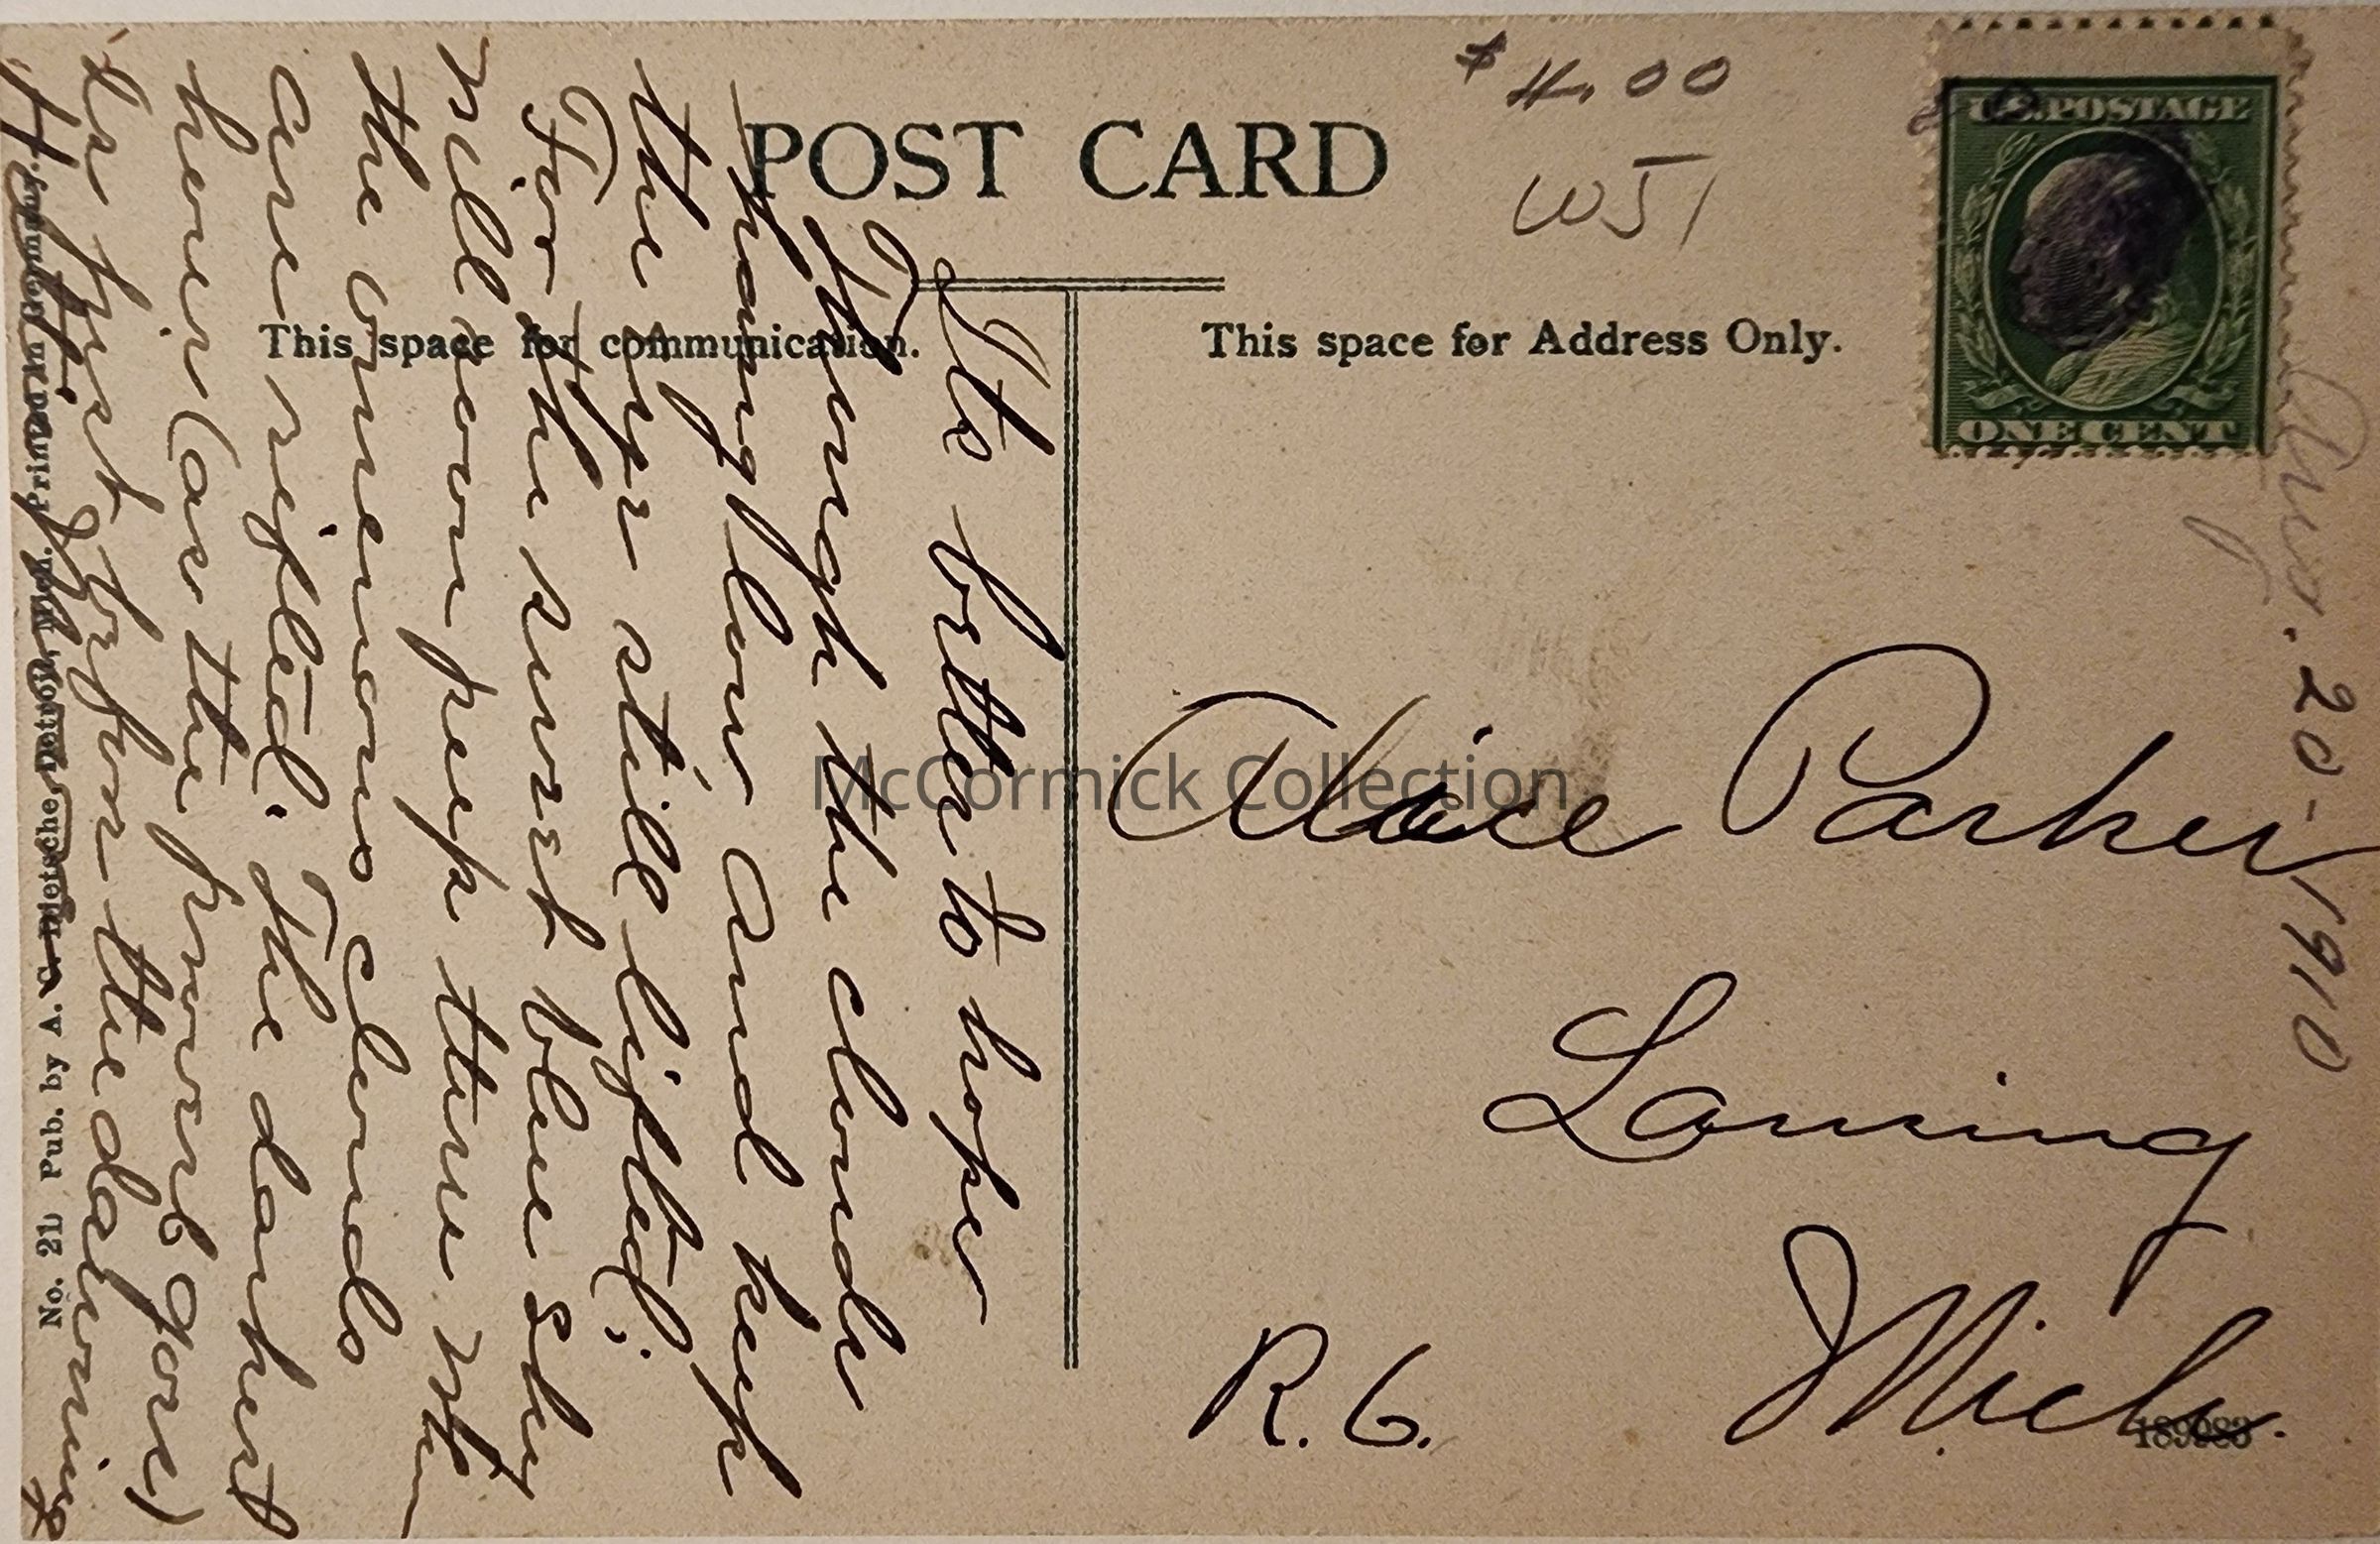 $4.00
W51
POST CARD
U.S. POSTAGE
ONE CENT
This space for communication.
This space for Address Only.
Its better to hope
Though the clouds
hang low And keep
the eyes still lifted;
For the sweet blue sky
will soon peep thru when
the ominous clouds
are rifted. The darkest
hour (as the proverb goes)
is just before the dawning
No. 2L Pub. by A. C. Dietsche, Detroit, Mich. Printed in Germany.
Alice Parker
Lansing
Mich.
R. 6.
Aug. 20-1910
189983
McCormick Collection